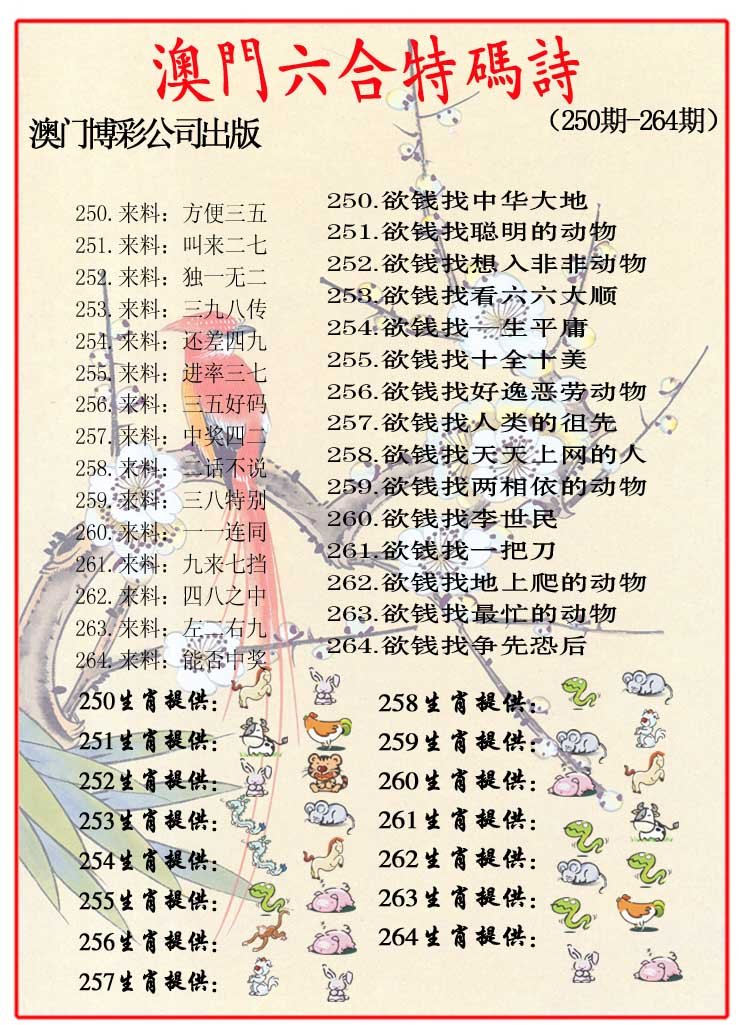 澳門六合特碼詩
澳门博彩公司出版
（250期-264期）
250.来料：方便三五
251.来料：叫来二七
252.来料：独一无二
253.来料：三九八传
254.来料：还差四九
255.来料：进率三七
256.来料：三五好码
257.来料：中奖四二
258.来料：二话不说
259.来料：三八特别
260.来料：一一连同
261.来料：九来七挡
262.来料：四八之中
263.来料：左一右九
264.来料：能否中奖
250.欲钱找中华大地
251.欲钱找聪明的动物
252.欲钱找想入非非动物
253.欲钱找看六六大顺
254.欲钱找一生平庸
255.欲钱找十全十美
256.欲钱找好逸恶劳动物
257.欲钱找人类的祖先
258.欲钱找天天上网的人
259.欲钱找两相依的动物
260.欲钱找李世民
261.欲钱找一把刀
262.欲钱找地上爬的动物
263.欲钱找最忙的动物
264.欲钱找争先恐后
250生肖提供：
251生肖提供：
252生肖提供：
253生肖提供：
254生肖提供：
255生肖提供：
256生肖提供：
257生肖提供：
258生肖提供：
259生肖提供：
260生肖提供：
261生肖提供：
262生肖提供：
263生肖提供：
264生肖提供：